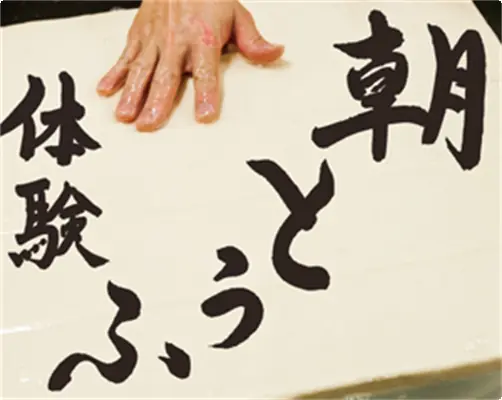 朝とうふ
体験